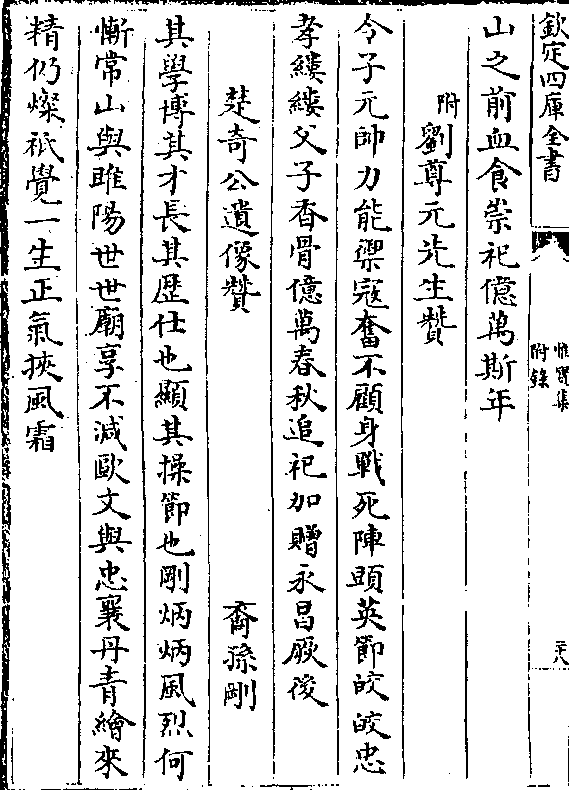 欽定四庫全書
惟實集
附錄
山之前血食崇祀億萬斯年
附劉尊元先生贊
令子元帥力能禦寇奮不顧身戰死陣頭英節皎皎忠
孝縷縷父子香骨億萬春秋追祀加贈永昌厥後
楚奇公遺像贊　裔孫剛
其學博其才長其歷仕也顯其操節也剛炳炳風烈何
慚常山與睢陽世世廟享不減歐文與忠襄丹青繪來
精仍燦祇覺一生正氣挾風霜